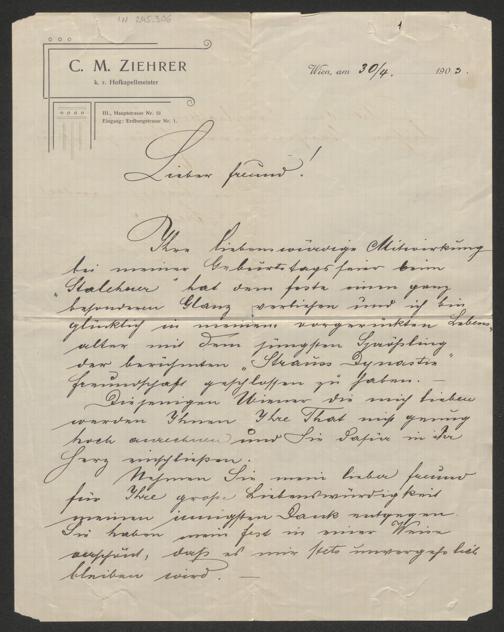 IN 245.306
1
C. M. ZIEHRER
k. k. Hofkapellmeister
III., Hauptstrasse Nr.
Eingang: Erdbergstrasse Nr. 1.
Wien, am 30/4. 1903.
Lieber Freund!
Ihre liebenswürdige Mitwirkung
bei meiner Geburtstagsfeier beim
"Stalehner" hat dem Feste einen ganz
besonderen Glanz verliehen und ich bin
glücklich in meinem vorgerückten Lebens
alter mit dem jüngsten Sprößling
der berühmten "Strauss Dynastie"
Freundschaft geschlossen zu haben. —
Diejenigen Wiener die mich lieben
werden Ihnen Ihre That nicht genug
hoch anrechnen und Sie dafür in Ihr
Herz einschließen.
Nehmen Sie mein lieber Freund
für Ihre große Liebenswürdigkeit
meinen innigsten Dank entgegen.
Sie haben mein Fest in einer Weise
verschönt, daß es mir stets unvergeßlich
bleiben wird. —